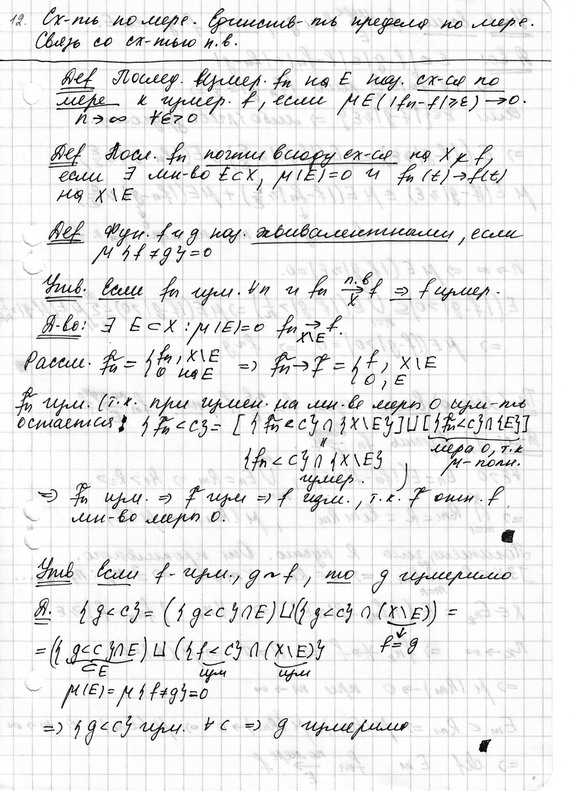 12. Сх-ть по мере. Единствен-ть предела по мере.
Связь со сх-тью п.в.
Def Послед. измер. fₙ на E наз. сх-ся по
мере к измер. f, если μE(|fₙ-f|≥ε)→0.
n→∞ ∀ε>0
Def Посл. fₙ почти всюду сх-ся на X к f,
если ∃ мн-во E⊂X, μ(E)=0 и fₙ(t)→f(t)
на X\E
Def Фун. f и g наз. эквивалентными, если
μ{f≠g}=0
Утв. Если fₙ изм. ∀n и fₙ п.в → X f ⇒ f измер.
Д-во: ∃ E⊂X : μ(E)=0 fₙ → X\E f.
Рассм. f̃ₙ = {fₙ, X\E 0 на E ⇒ f̃ₙ→f̃ = {f, X\E 0, E
f̃ₙ изм. (т.к. при измен. на мн-ве меры 0 изм-ть
остается: {f̃ₙ<c} = [{f̃ₙ<c}∩{X\E}]⊔[{f̃ₙ<c}∩{E}]
" мера 0, т.к
{fₙ<c}∩{X\E} μ-полн.
измер. )
⇒ f̃ₙ изм. ⇒ f̃ изм ⇒ f изм., т.к. f̃ отл. f
мн-во меры 0.
Утв Если f-изм., g~f, то g измеримо
Д. {g<c} = ({g<c}∩E)⊔({g<c}∩(X\E)) =
= ({g<c}∩E)⊔({f<c}∩(X\E)} f=g
⊂E изм изм
μ(E)=μ{f≠g}=0
⇒ {g<c} изм. ∀c ⇒ g измеримо